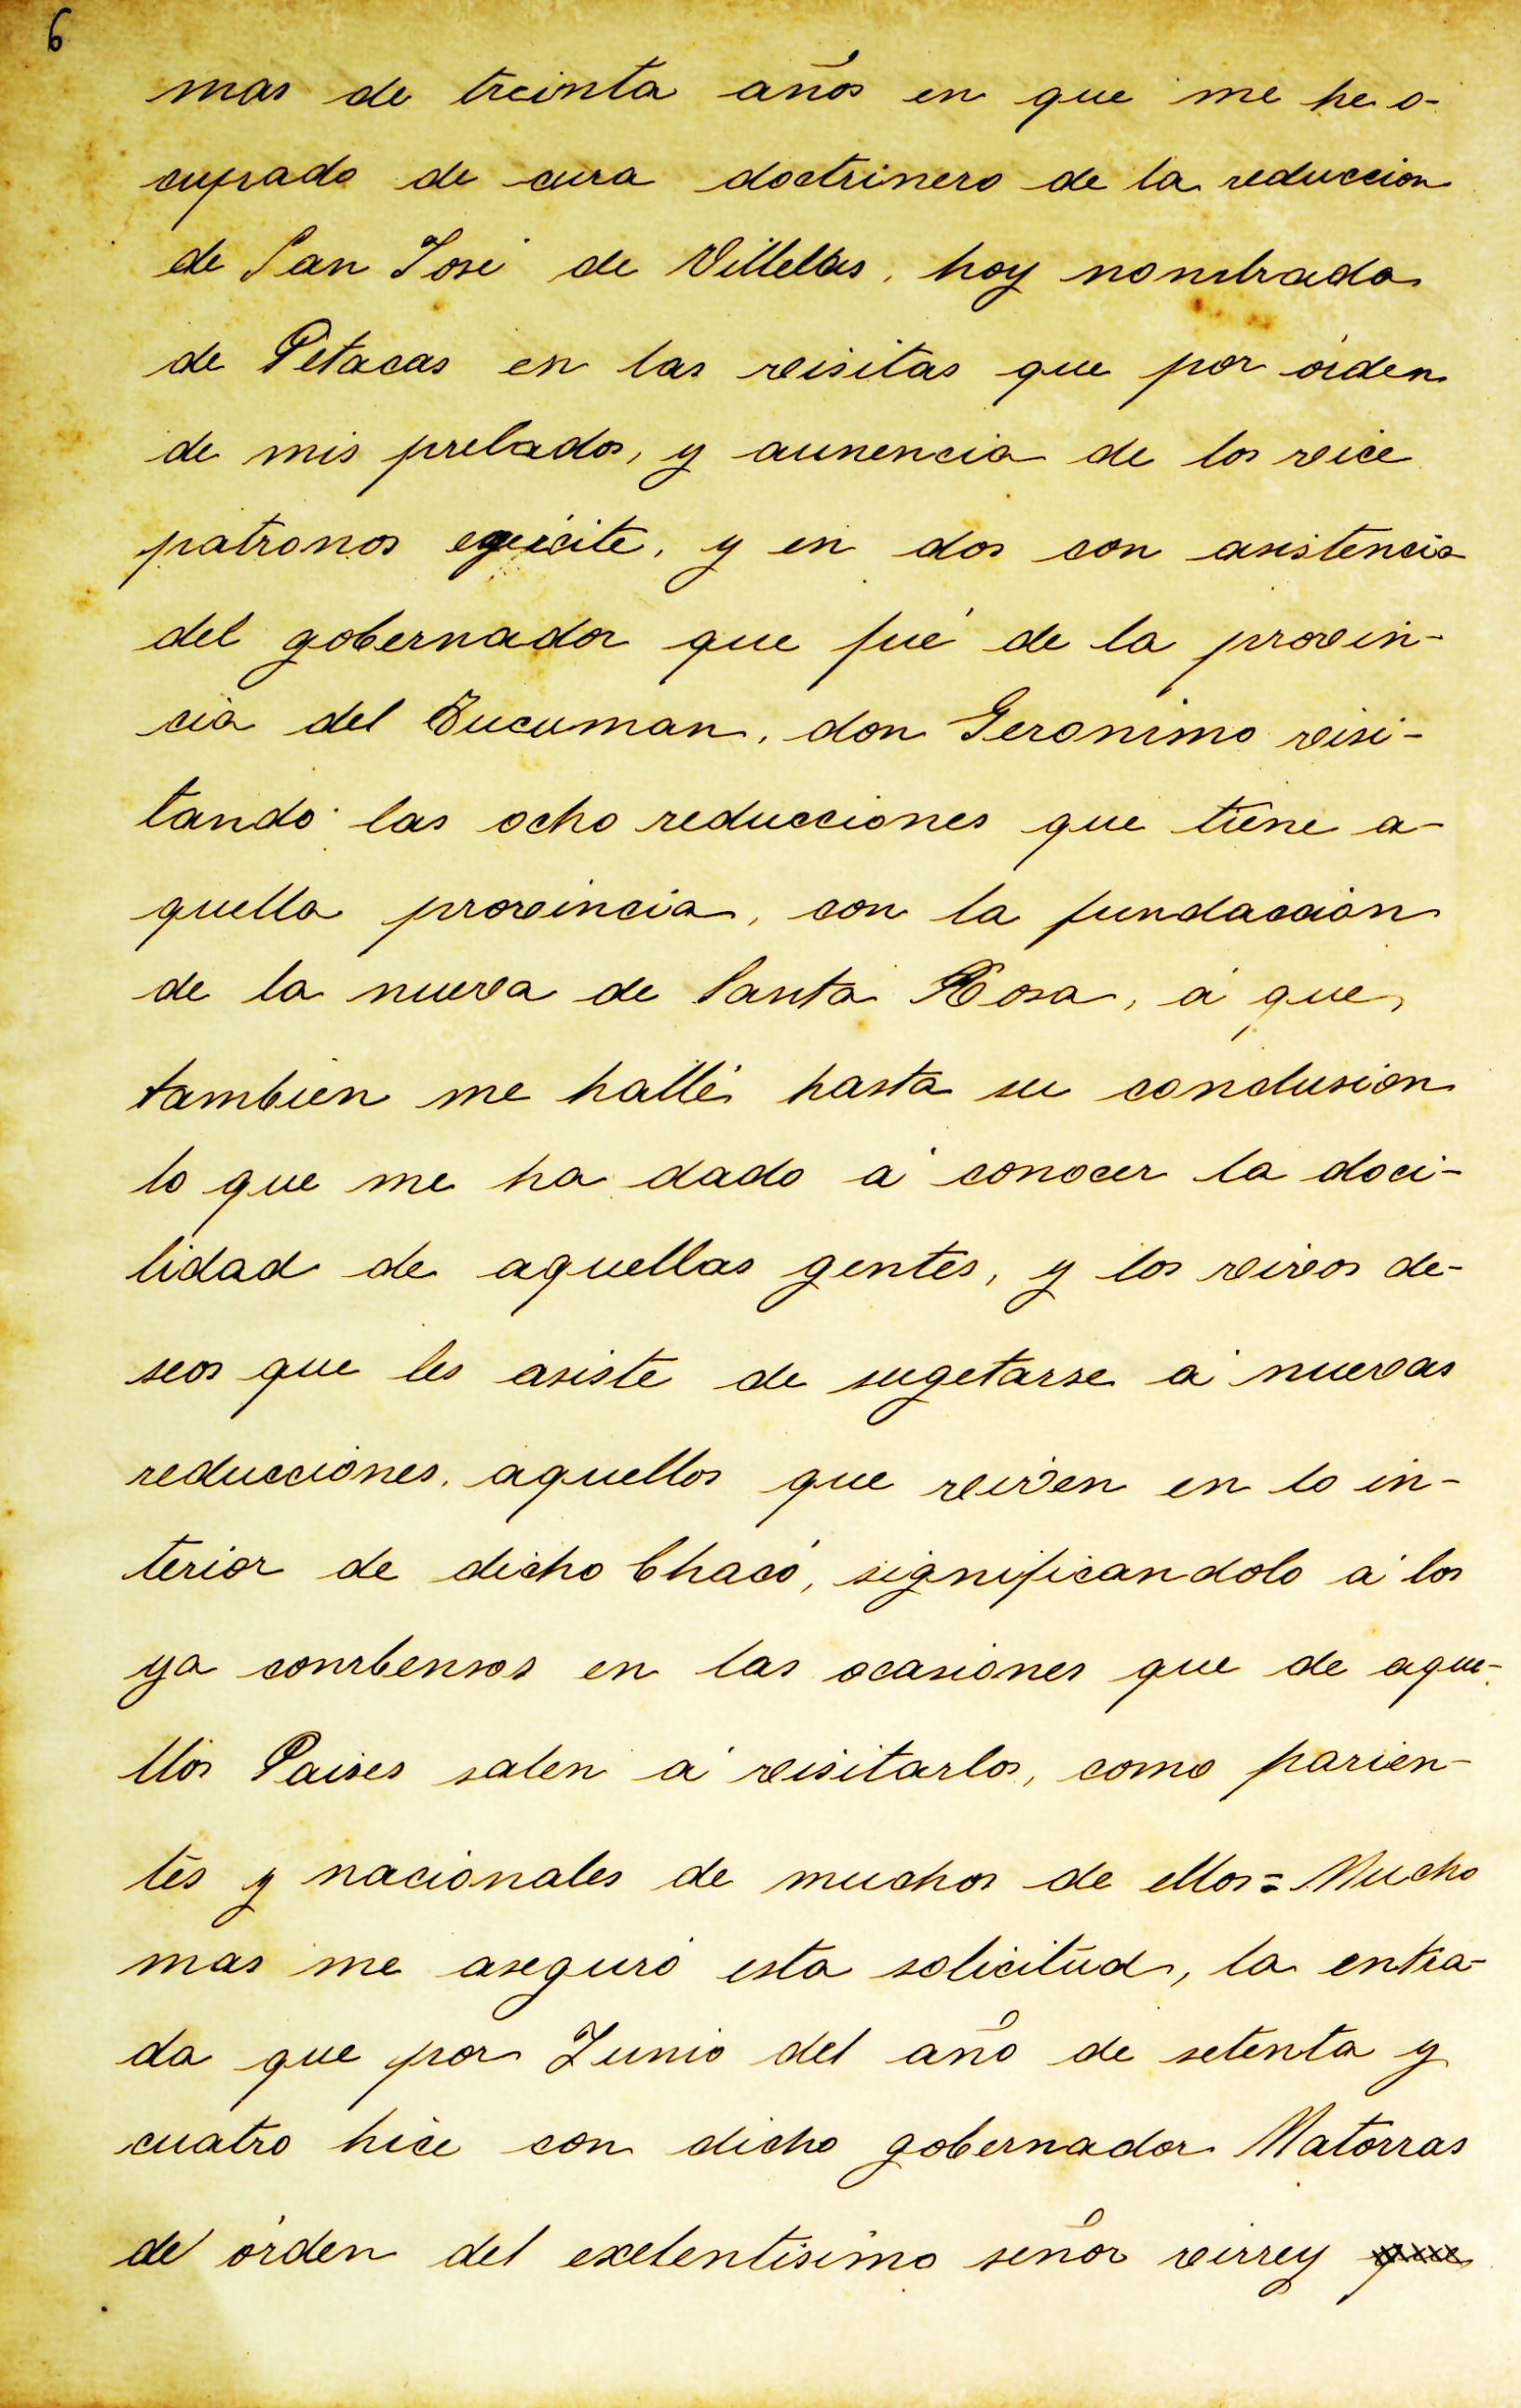 6
mas de treinta años en que me he o-
cupado de cura doctrinero de la reduccion
de San José de Villelas, hoy nombrada
de Petacas en las visitas que por órden
de mis prelados, y aunencia de los vice
patronos egécité, y en dos con asistencia
del gobernador que fué de la provin-
cia del Tucuman, don Geronimo visi-
tando las ocho reducciones que tiene a-
quella provincia, con la fundaccion
de la nueva de Santa Rosa, á que
tambien me hallé hasta su conclusion
lo que me ha dado á conocer la doci-
lidad de aquellas gentes, y los vivos de-
seos que les asiste de sugetarse á nuevas
reducciones, aquellos que viven en lo in-
terior de dicho Chaco, significandolo á los
ya combensos en las ocasiones que de aque-
llos Paises salen á visitarlos, como parien-
tes y nacionales de muchos de ellos = Mucho
mas me aseguró esta solicitud, la entra-
da que por Junio del año de setenta y
cuatro hice con dicho gobernador Matorras
de órden del exelentisimo señor virrey